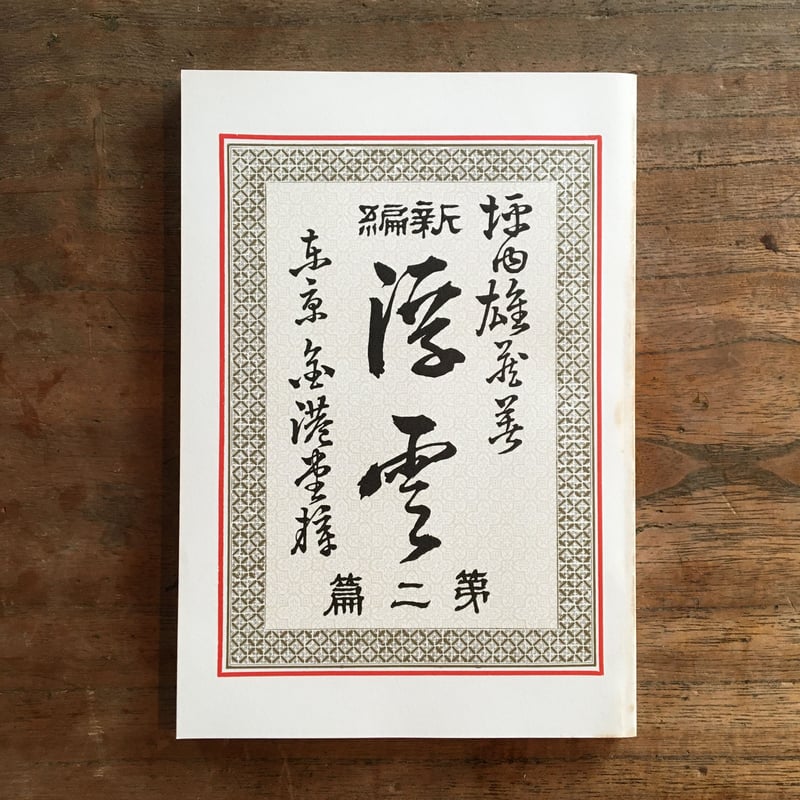 坪内雄蔵著
新編
浮雲
第二篇
東京金港堂梓